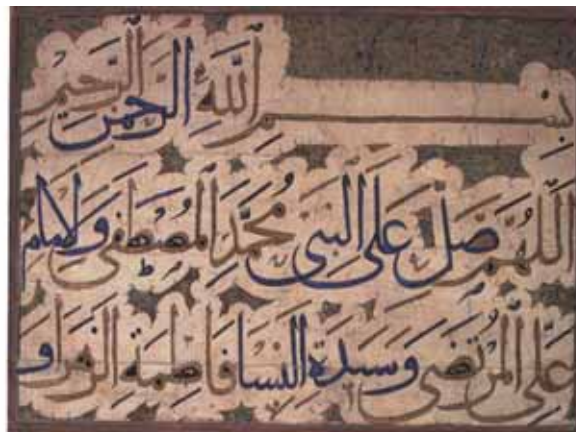 بسم الله الرحمن الرحيم
اللهم صل على النبي محمد المصطفى والامام
علي المرتضى وسيدة النسا فاطمة الزهرا و